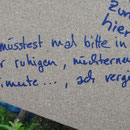 Zur
hier
müsstest mal bitte in
r ruhigen, nüchternen
inute..., sdr vergi